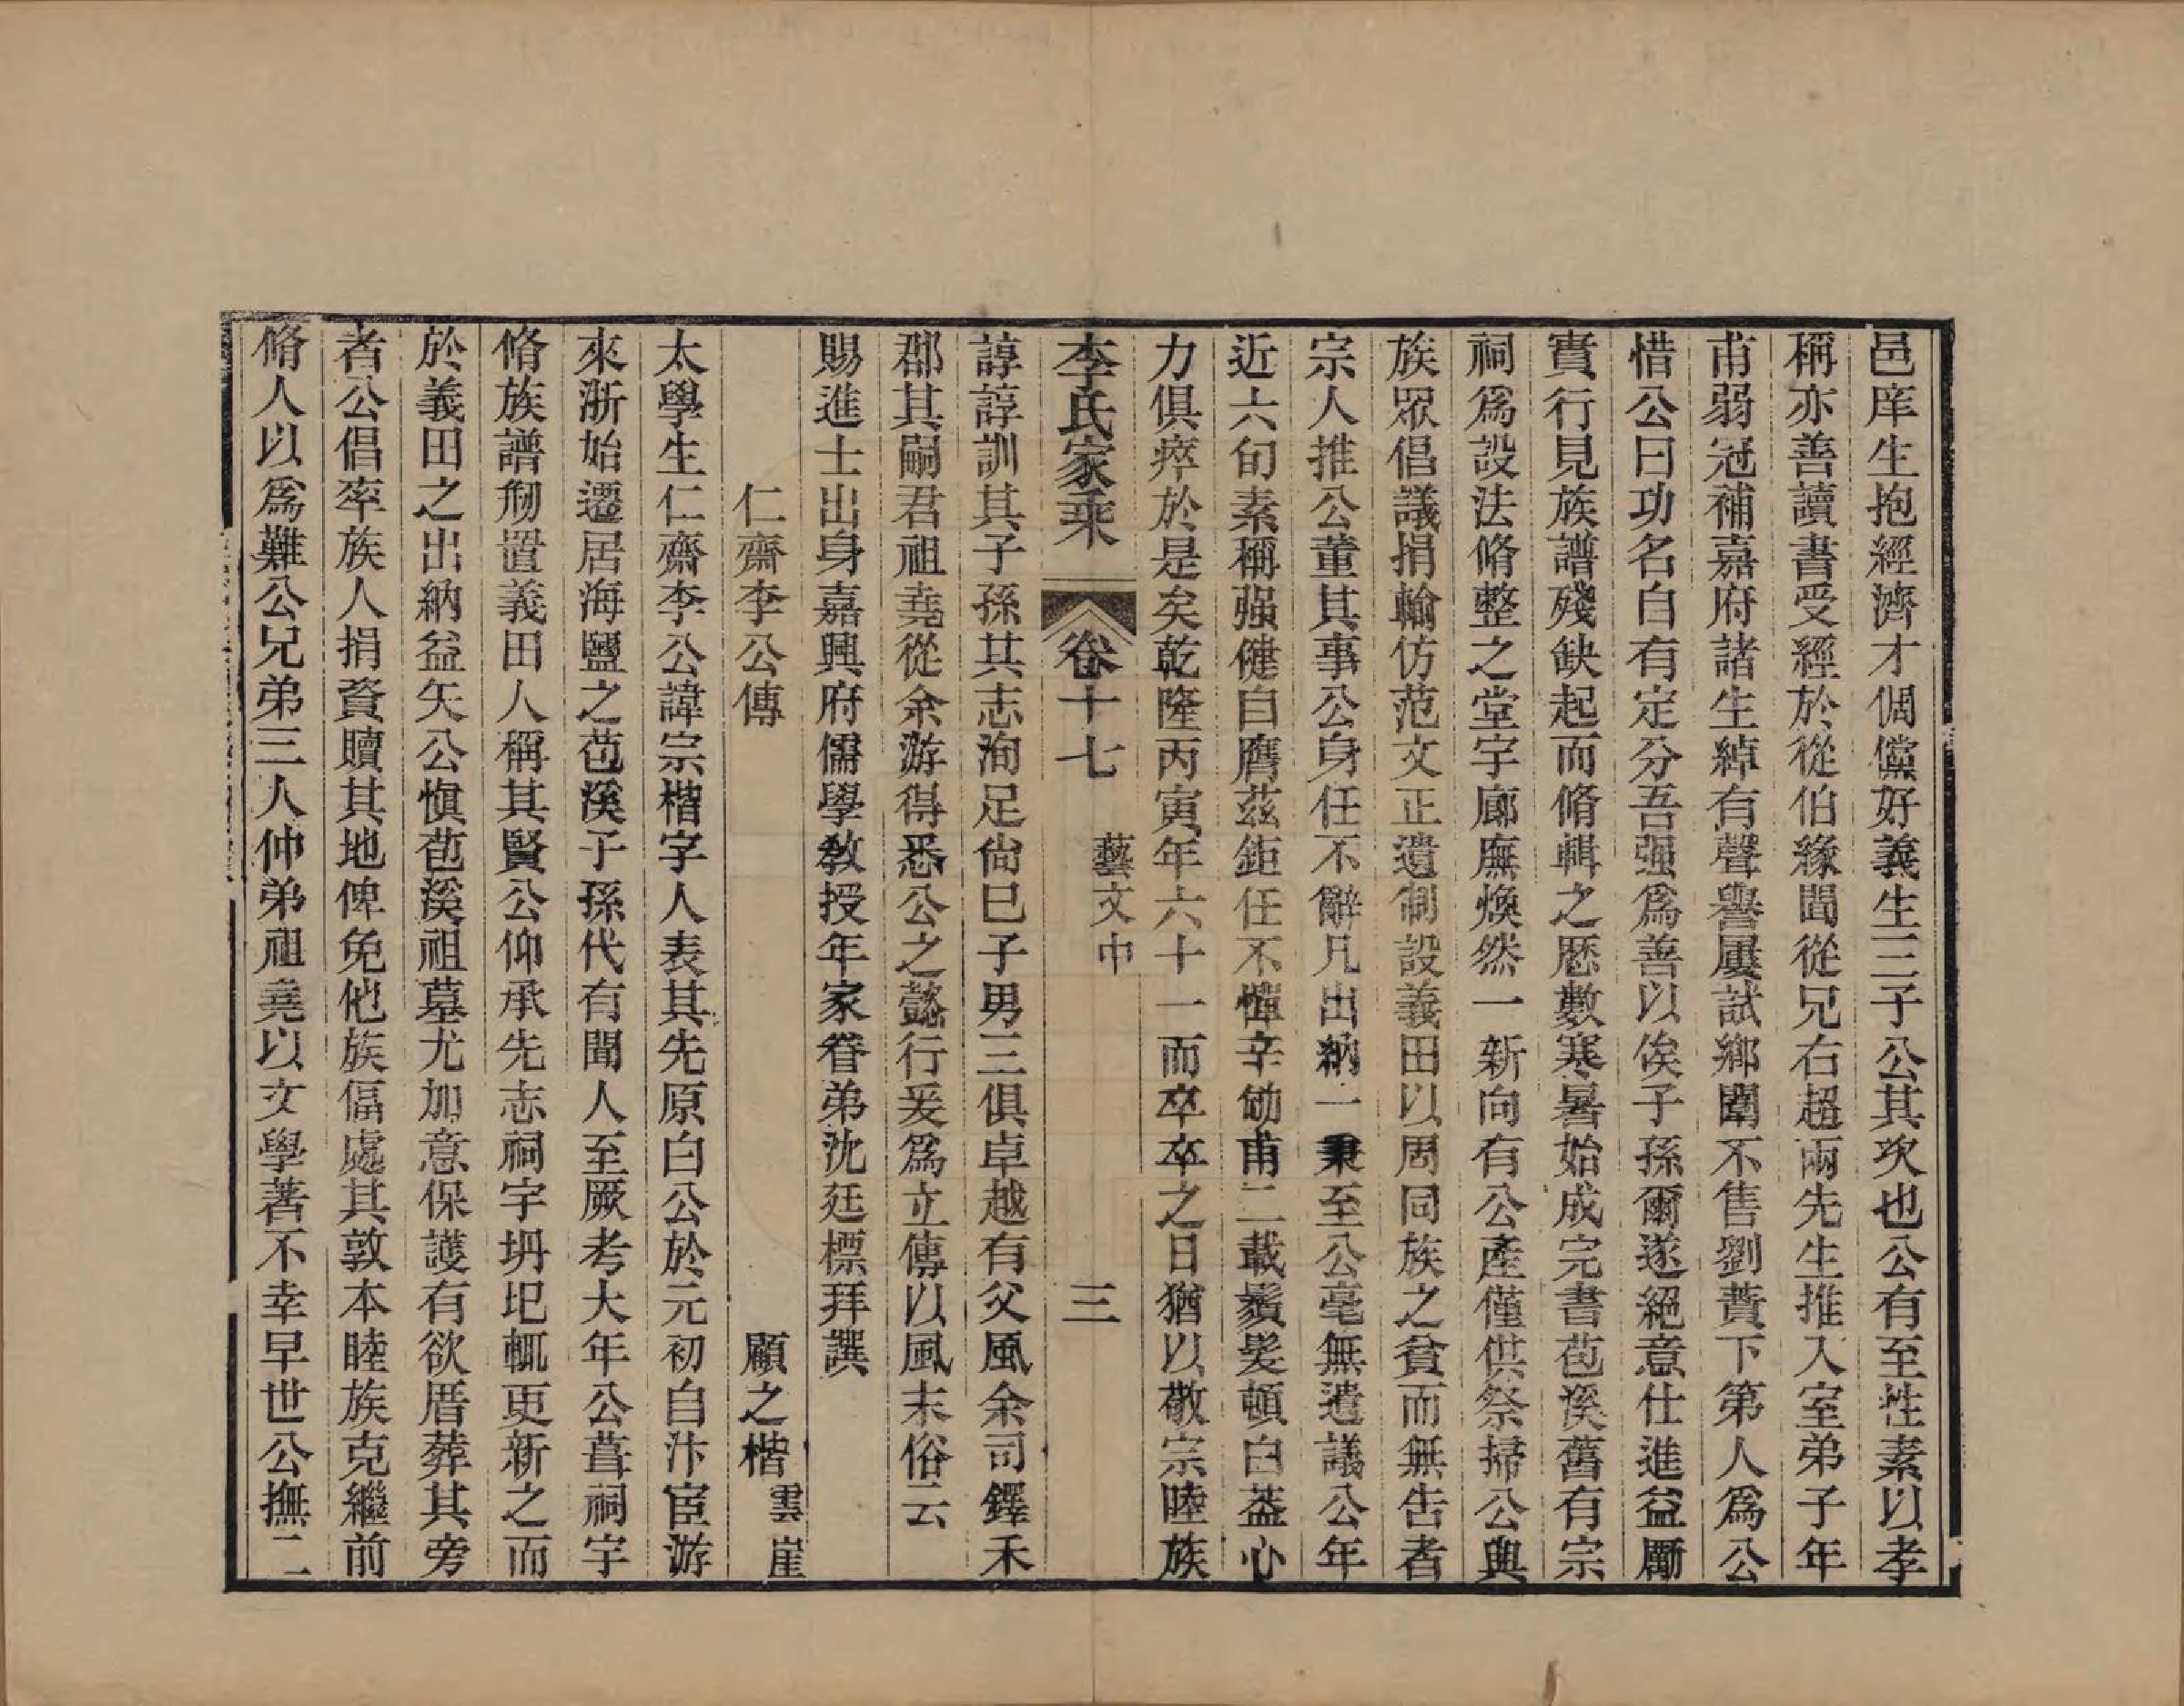 邑庠生抱經濟才倜儻好義生三子公其次也公有至性素以孝
稱亦善讀書受經於從伯緣閭從兄右超兩先生推入室弟子年
甫弱冠補嘉府諸生綽有聲譽屢試鄉闈不售劉蕡下第人爲公
惜公曰功名自有定分吾强爲善以俟子孫爾遂絕意仕進益勵
實行見族譜殘缺起而脩輯之歷數寒暑始成完書苞溪舊有宗
祠爲設法脩整之堂宇廊廡煥然一新向有公產僅供祭掃公與
族眾倡議捐輸仿范文正遺制設義田以周同族之貧而無告者
宗人推公董其事公身任不辭凡出納一秉至公毫無遺議公年
近六旬素稱强健自膺茲鉅任不憚辛劬甫二載鬚髮頓白蓋心
力俱瘁於是矣乾隆丙寅年六十一而卒卒之日猶以敬宗睦族
李氏家乘 卷十七 藝文中 三
諄諄訓其子孫其志洵足尙已子男三俱卓越有父風余司鐸禾
郡其嗣君祖堯從余游得悉公之懿行爰爲立傳以風末俗云
賜進士出身嘉興府儒學敎授年家眷弟沈廷標拜譔
仁齋李公傳 顧之楷雲崖
太學生仁齋李公諱宗楷字人表其先原白公於元初自汴宦游
來浙始遷居海鹽之苞溪子孫代有聞人至厥考大年公葺祠宇
脩族譜刱置義田人稱其賢公仰承先志祠宇坍圯輒更新之而
於義田之出納益矢公愼苞溪祖墓尤加意保護有欲厝葬其旁
者公倡率族人捐資贖其地俾免他族偪處其敦本睦族克繼前
脩人以爲難公兄弟三人仲弟祖堯以文學著不幸早世公撫二